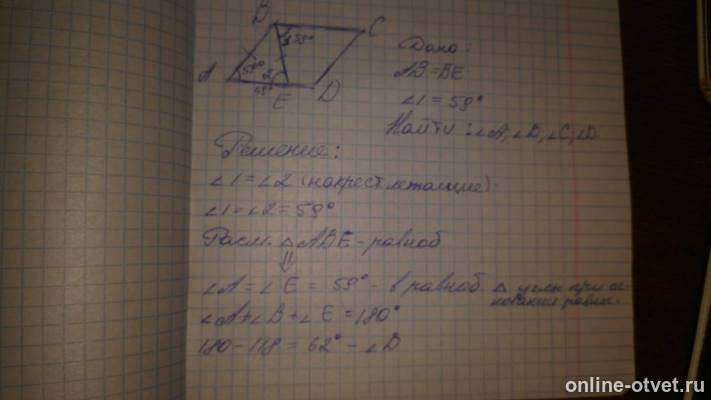 B
C
1 59°
A
59°
2
59°
E
D
Дано:
AB=BE
∠1=59°
Найти: ∠A, ∠D, ∠C, ∠D.
Решение:
∠1=∠2 (накрест лежащие).
∠1=∠2=59°
Расм. △ABE - равноб
⇓
∠A=∠E=59° - в равноб. △ углы при ос-
новании равны.
∠A+∠B+∠E=180°
180-118=62° - ∠D
online-otvet.ru